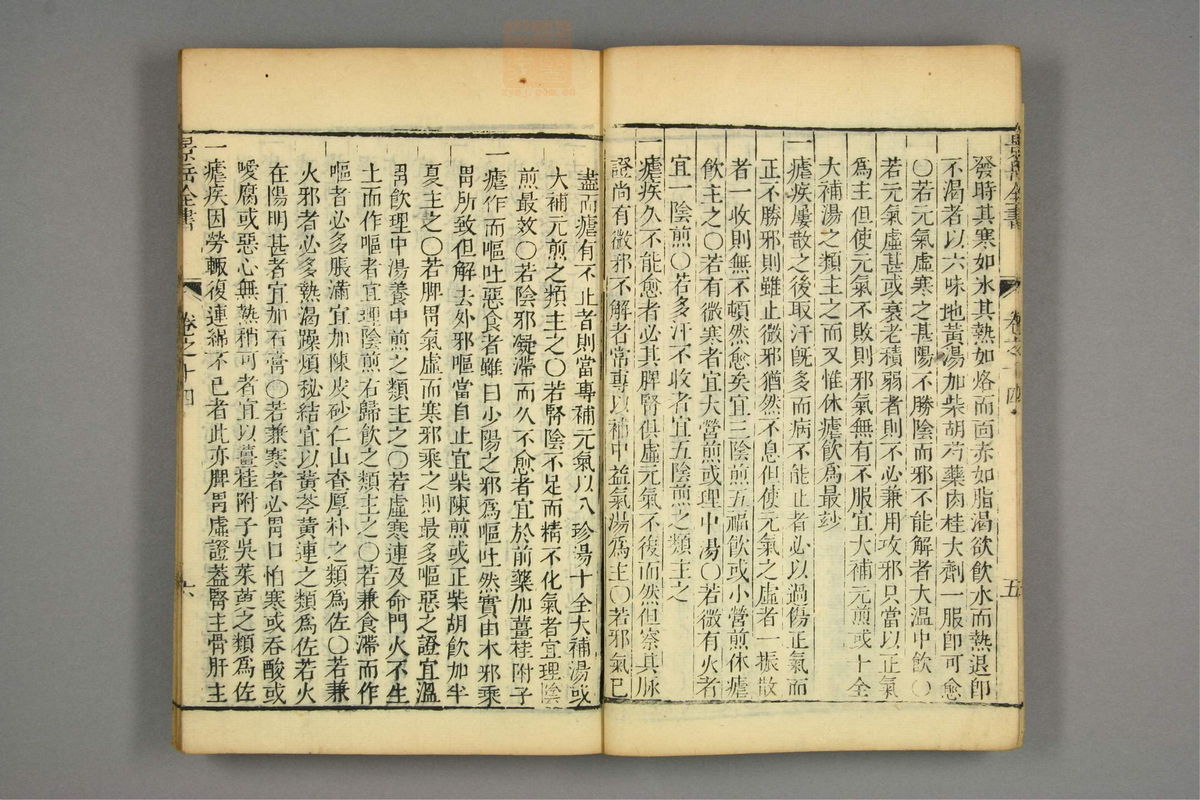 景岳全書
卷之十四
五
發時其寒如氷其熱如烙而面赤如脂渴欲飲水而熱退卽
不渴者以六味地黃湯加柴胡芍藥肉桂大劑一服卽可愈
〇若元氣虛寒之甚陽不勝陰而邪不能解者大温中飲〇
若元氣虛甚或衰老積弱者則不必兼用攻邪只當以正氣
爲主但使元氣不敗則邪氣無有不服宜大補元煎或十全
大補湯之類主之而又惟休瘧飲爲最妙
一瘧疾屢散之後取汗旣多而病不能止者必以過傷正氣而
正不勝邪則雖止微邪猶然不息但使元氣之虛者一振散
者一收則無不頓然愈矣宜三陰煎五福飲或小營煎休瘧
飲主之〇若有微寒者宜大營煎或理中湯〇若微有火者
宜一陰煎〇若多汗不收者宜五陰煎之類主之
一瘧疾久不能愈者必其脾腎俱虛元氣不復而然但察其脉
證尚有微邪不解者當專以補中益氣湯爲主〇若邪氣已
盡而瘧有不止者則當專補元氣以八珍湯十全大補湯或
大補元煎之類主之〇若腎陰不足而精不化氣者宜理陰
煎最效〇若陰邪凝滯而久不愈者宜於前藥加薑桂附子
一瘧作而嘔吐惡食者雖曰少陽之邪爲嘔吐然實由木邪乘
胃所致但解去外邪嘔當自止宜柴陳煎或正柴胡飲加半
夏主之〇若脾胃氣虛而寒邪乘之則最多嘔惡之證宜溫
胃飲理中湯養中煎之類主之〇若虛寒連及命門火不生
土而作嘔者宜理陰煎右歸飲之類主之〇若兼食滯而作
嘔者必多脹滿宜加陳皮砂仁山查厚朴之類爲佐〇若兼
火邪者必多熱渴躁煩秘結宜以黃芩黃連之類爲佐若火
在陽明甚者宜加石膏〇若兼寒者必胃口怕寒或吞酸或
噯腐或惡心無熱稍可者宜以薑桂附子吳茱萸之類爲佐
一瘧疾因勞輒復連綿不已者此亦脾胃虛證蓋腎主骨肝主
景岳全書
卷之十四
六